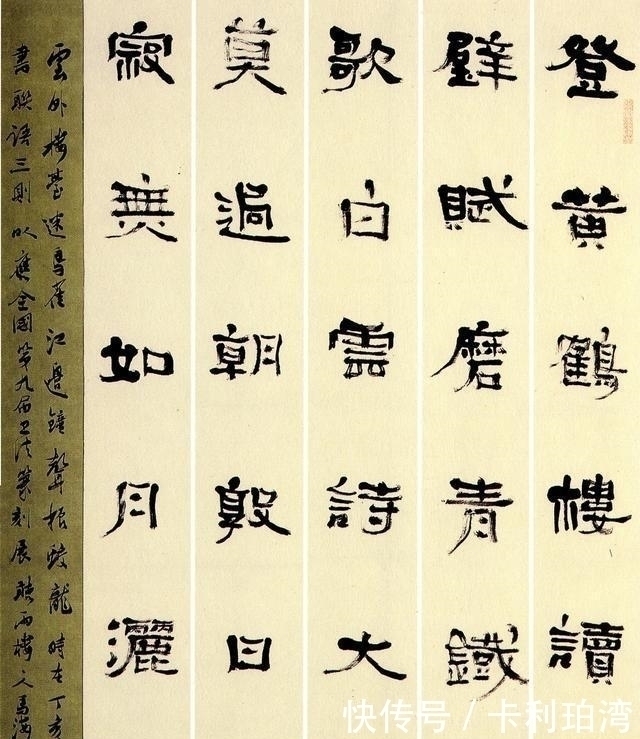 登黄鶴樓讀
壁賦磨青鐵
歌白雲詩大
莫過朝敦日
寂無如月灑
雲外樓臺迷鳥雀江邊鐘聲振蛟龍時在丁亥
書聯語三則以應全國第九屆書法篆刻展聽雨樓
快传号 / 卡利珀湾